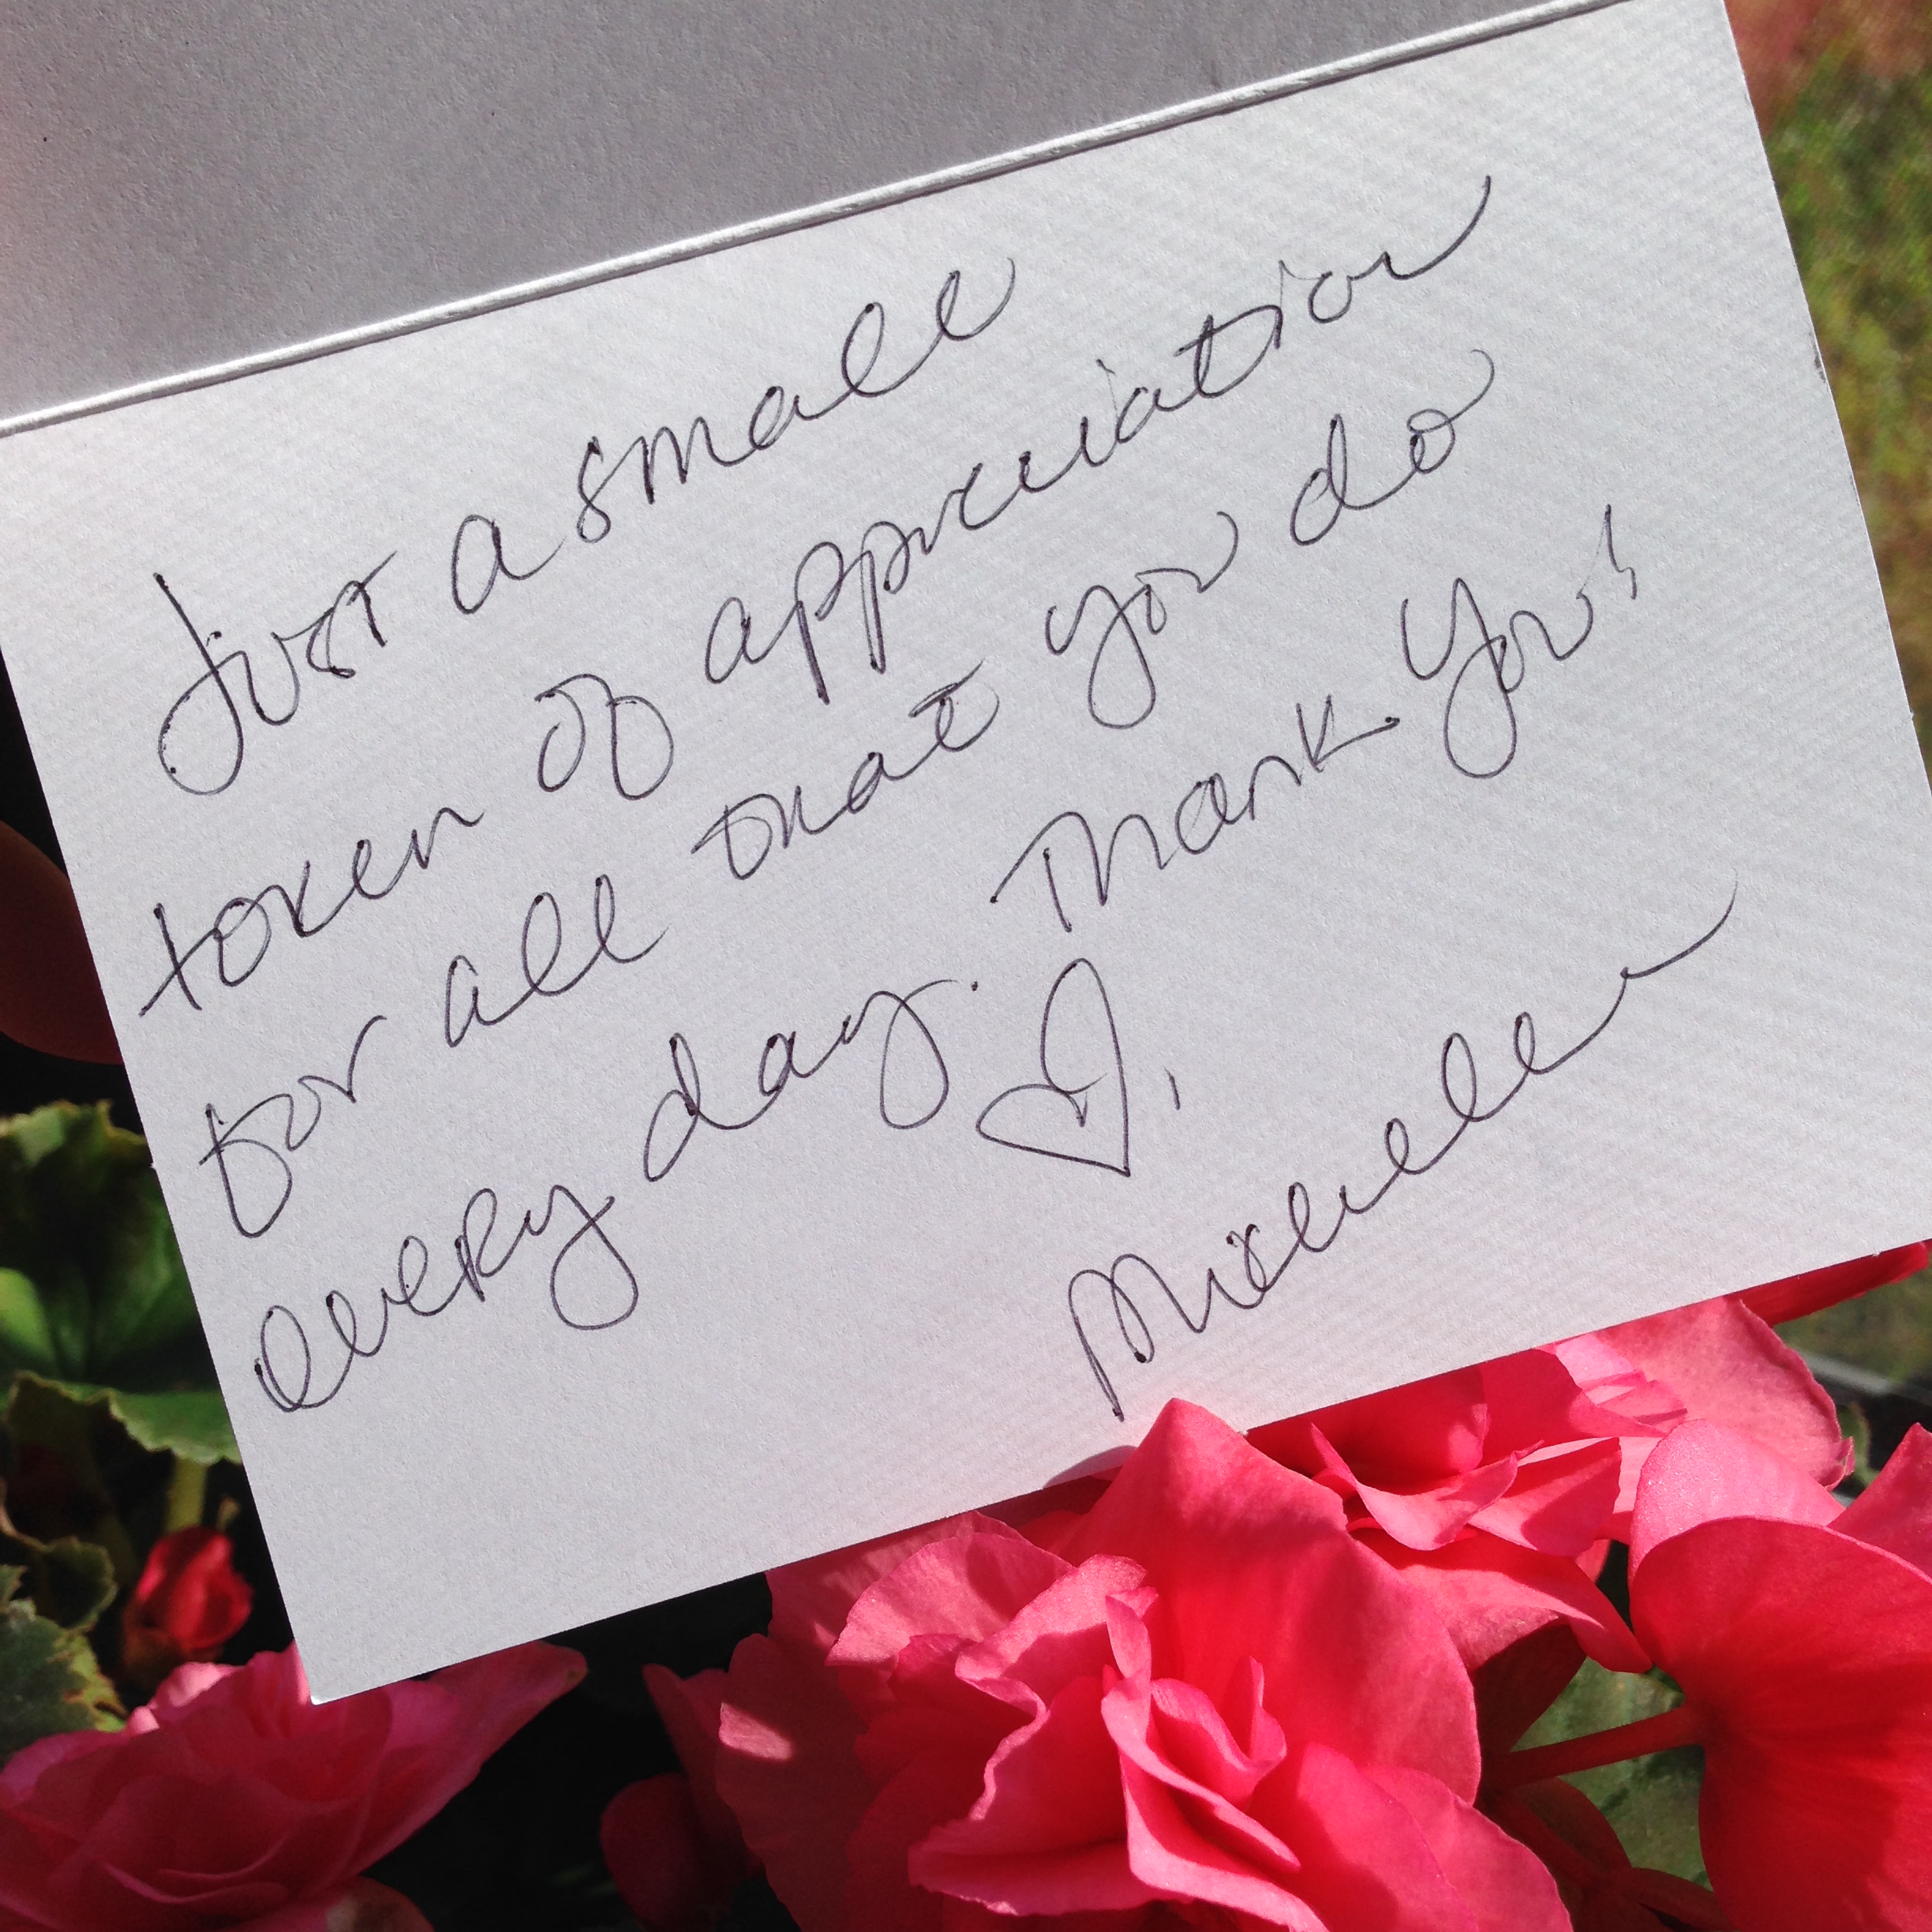 Just a small
token of appreciation
for all that you do
every day. Thank You!
♡,
Michelle